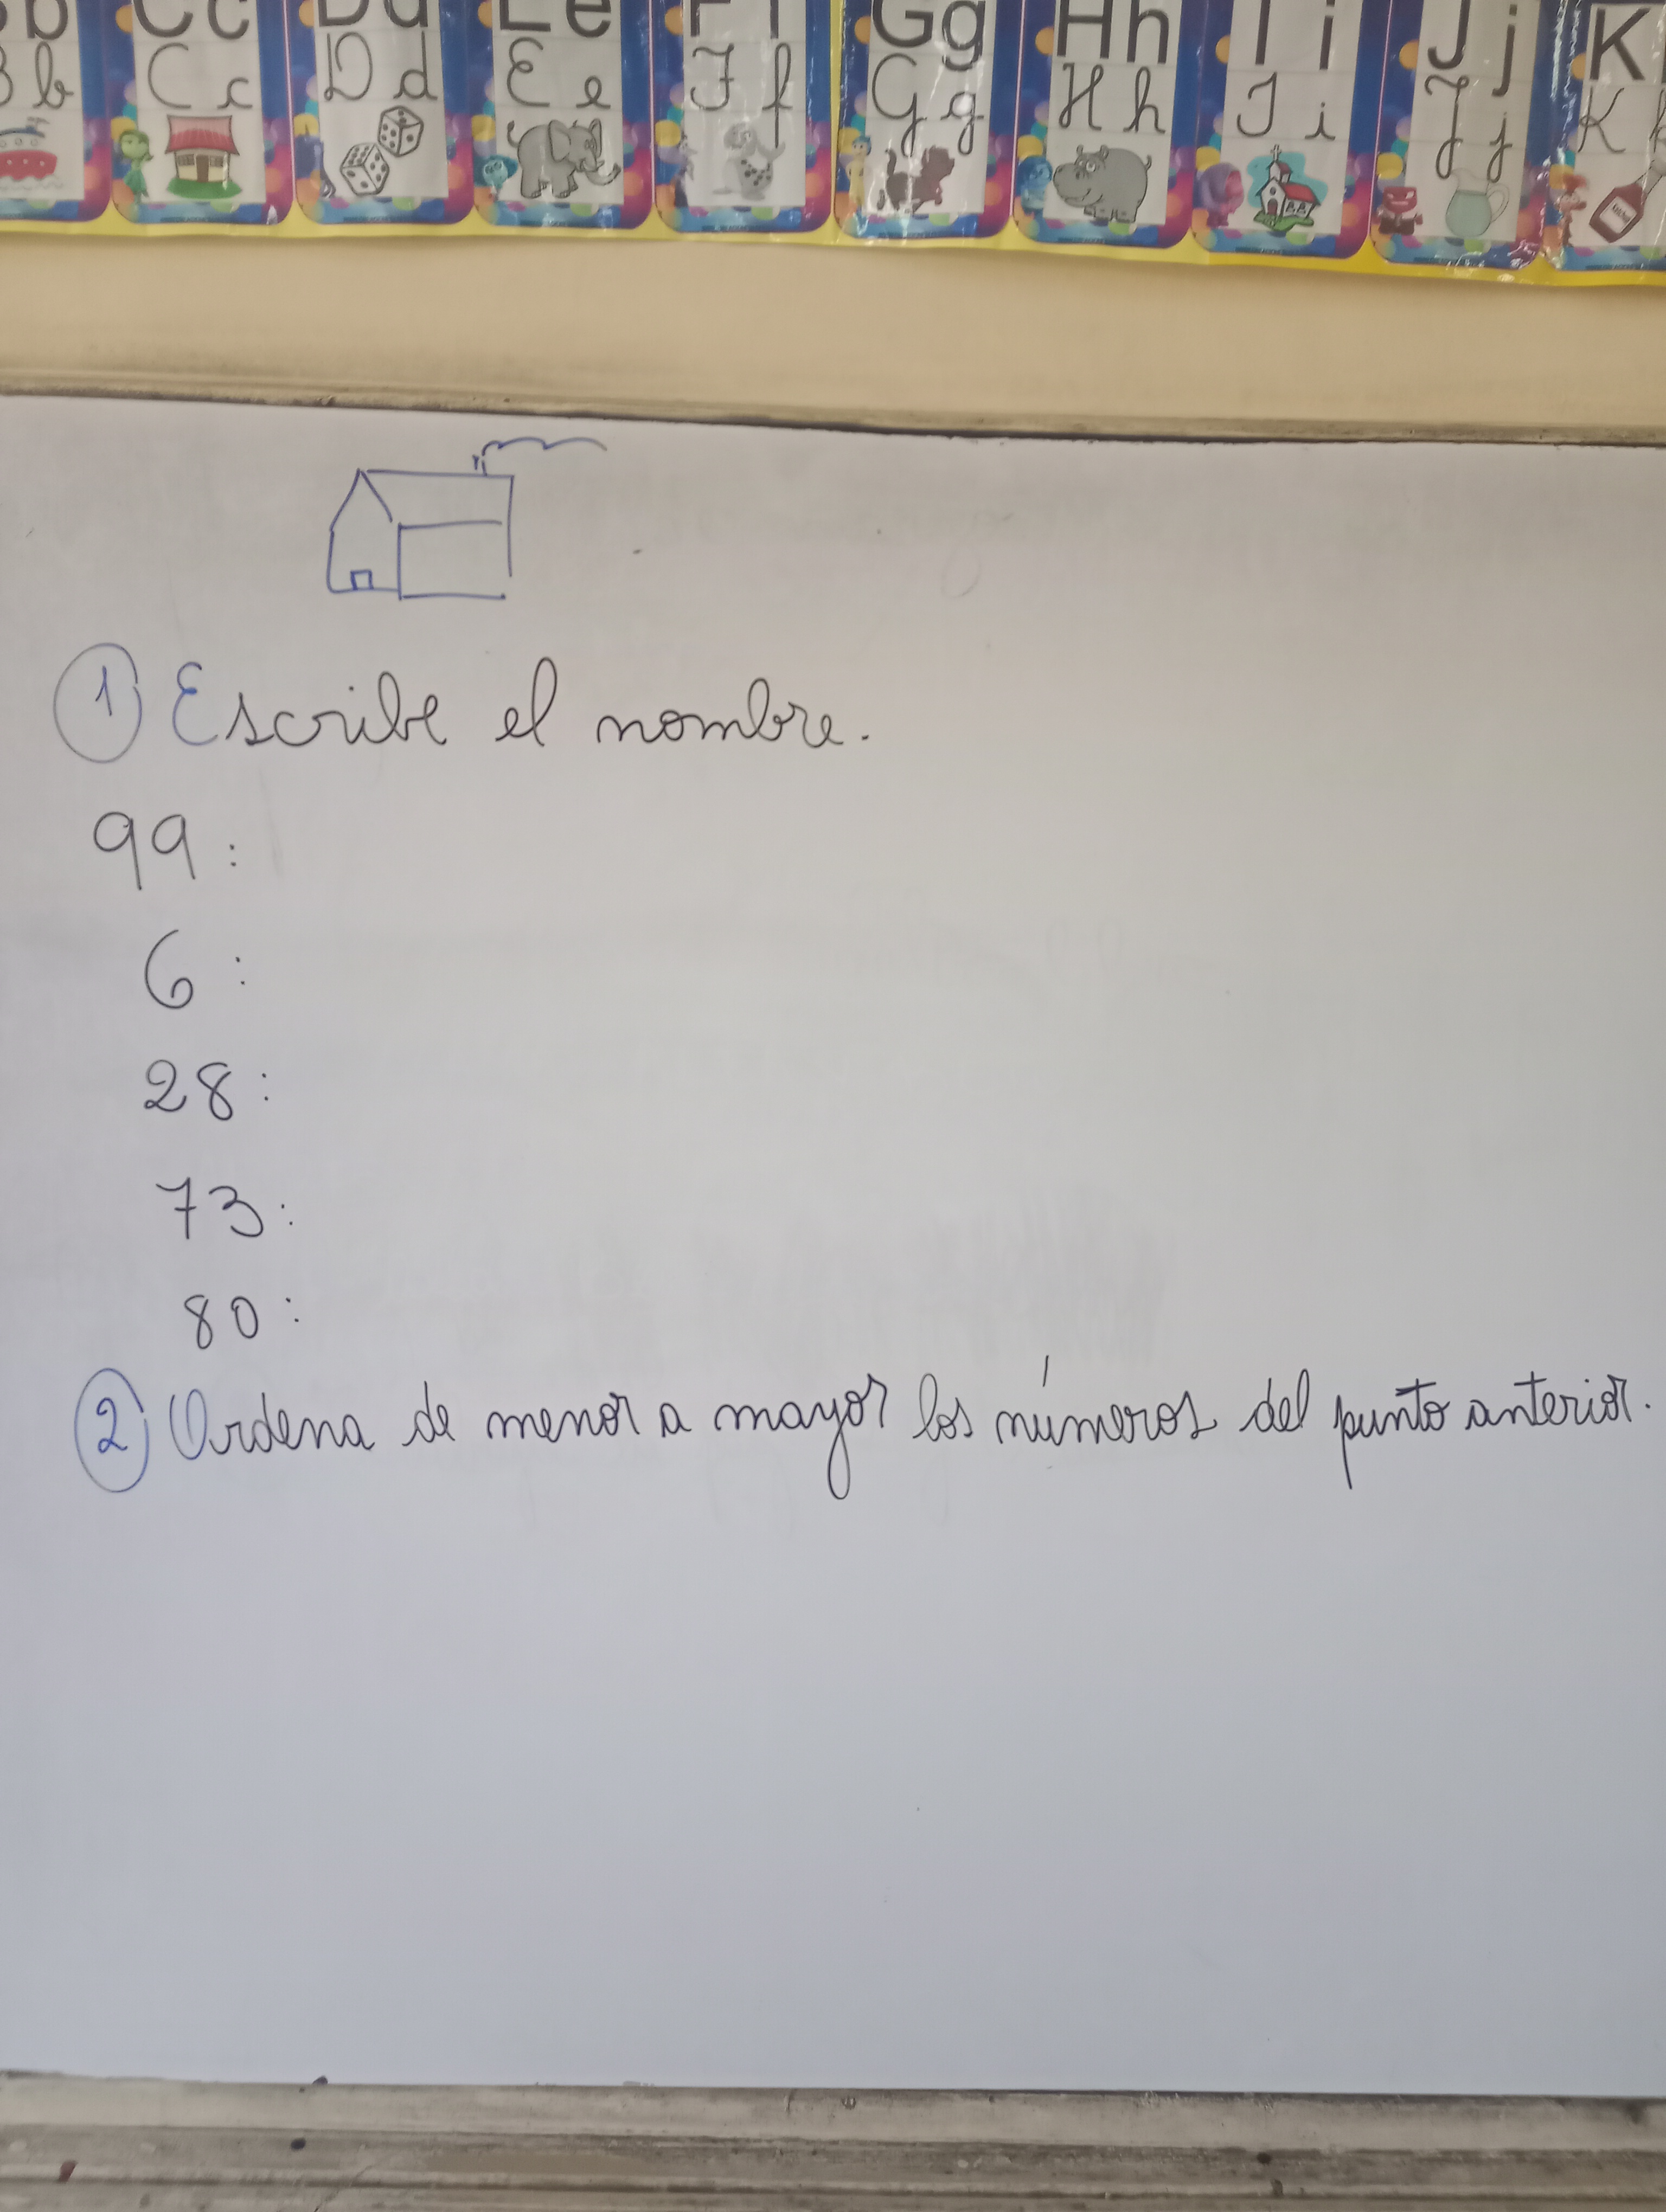 Cc Dd Ee Ff Gg Hh Ii Jj K
Bb Cc Dd Ee Ff Gg Hh Ii Jj K
1) Escribe el nombre.
99:
6:
28:
73:
80:
2) Ordena de menor a mayor los números del punto anterior.